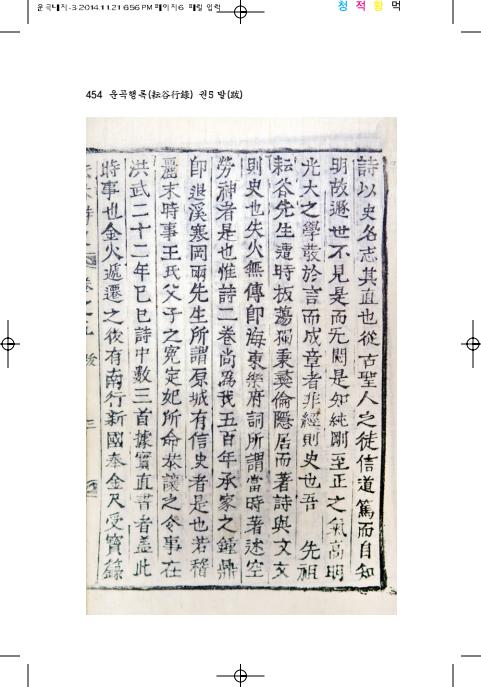 운곡내지-3 2014.11.21 6:56 PM 페이지6
청 적 황 먹
454 운곡행록(耘谷行錄) 권5 발(跋)
詩以史名志其直也從古聖人之徒信道篤而自知
明故遯世不見是而无悶是如純剛至正之氣高明
光大之學散於言而成章者非經則史也吾 先祖
耘谷先生遭時板蕩獨秉彛倫隱居而著詩與文文
則史也失火無傳卽海東樂府詞所謂當時著述空
勞神者是也惟詩二卷尙爲我五百年承家之鍾鼎
卽退溪寒岡兩先生所謂原城有信史者是也若稽
麗末時事王氏父子之冤定妃所命恭讓之參事在
洪武二十二年己巳詩中數三首據實直書者盖此
時事也金火遞遷之後有南行新國奉金尺受寶籙